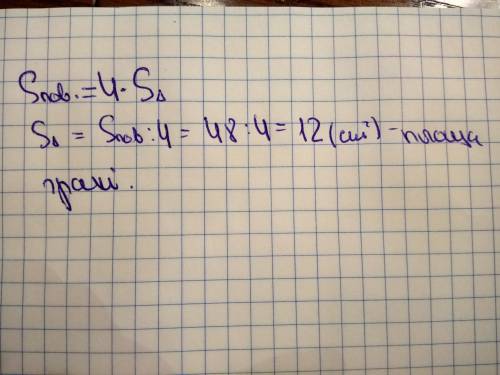 Sпов. = 4 · S△
S△ = Sпов : 4 = 48 : 4 = 12 (см²) - площа
грані.